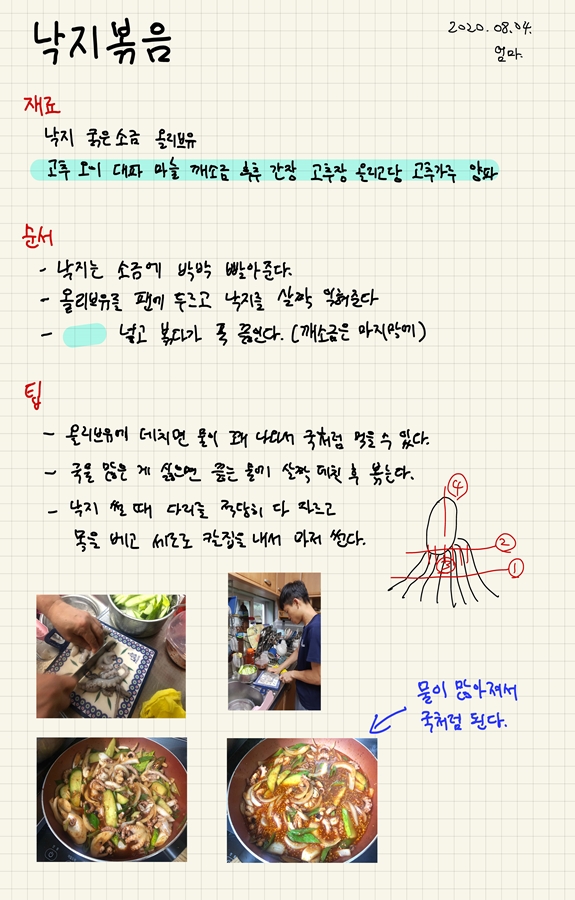 낙지볶음
2020. 08. 04.
엄마.
재료
낙지 굵은소금 올리브유
고추 오이 대파 마늘 깨소금 후추 간장 고추장 올리고당 고추가루 양파
순서
- 낙지는 소금에 박박 빨아준다.
- 올리브유를 팬에 두르고 낙지를 살짝 익혀준다
- 넣고 볶다가 푹 끓인다. (깨소금은 마지막에)
팁
- 올리브유에 데치면 물이 꽤 나와서 국처럼 먹을 수 있다.
- 국물 많은 게 싫으면 끓는 물에 살짝 데친 후 볶는다.
- 낙지 썰 때 다리를 적당히 다 자르고
목을 베고 세로로 칼집을 내서 마저 썬다.
④
②
③
①
물이 많아져서
국처럼 된다.